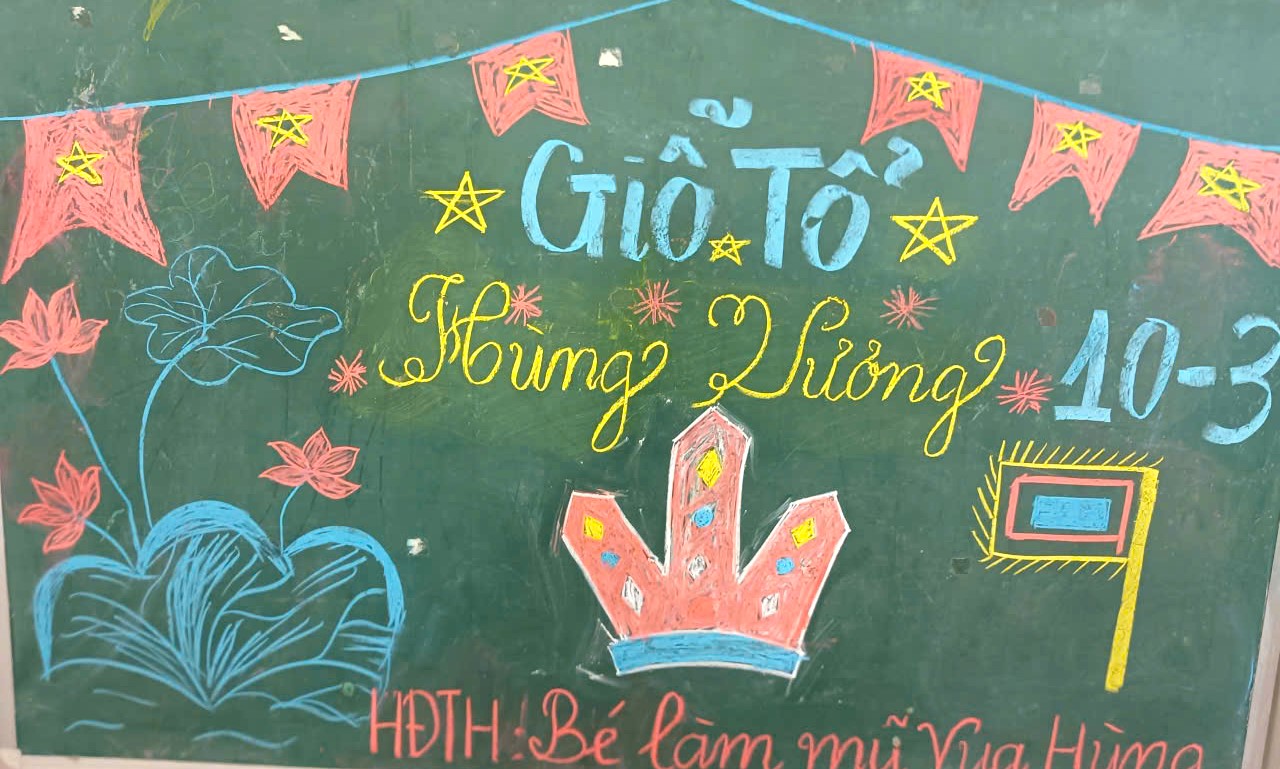 Giỗ Tổ
Hùng Vương 10-3
HĐTH: Bé làm mũ Vua Hùng